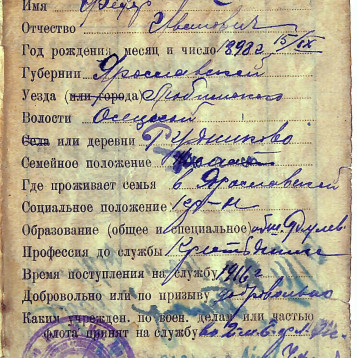 Имя Федор
Отчество Иванович
Год рождения, месяц и число 1898 г 15/IX
Губернии Ярославской
Уезда (или города) Любимского
Волости Осецкой
Село или деревни
Семейное положение
Где проживает семья в Ярославской
Социальное положение кр-н
Образование (общее и специальное) общ.
Профессия до службы
Время поступления на службу 1916 г
Добровольно или по призыву добровольно
Каким учрежден. по воен. делам или частью
флота принят на службу во 2